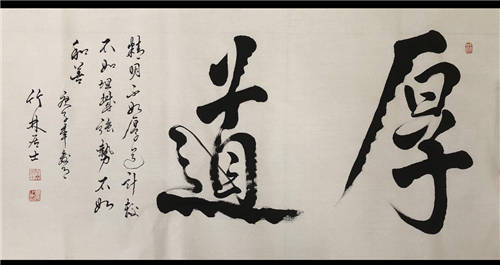 厚道
精明不如厚道计較
不如坦蕩强勢不如
和善 庚子年
竹林居士